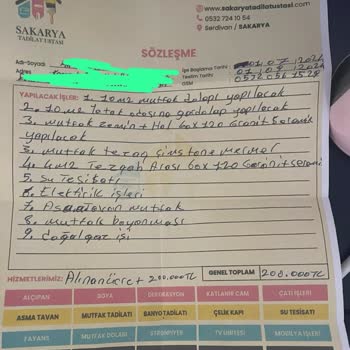 SAKARYA
TADİLAT USTASI
www.sakaryatadilatustasi.com
0532 724 10 54
Serdivan / SAKARYA
SÖZLEŞME
Adı-Soyadı
Adres
İşe Başlama Tarihi
Teslim Tarihi
GSM
YAPILACAK İŞLER: 1. 10m2 mutfak dolapı yapılacak
2. 10m2 Yatak odasına gardolap yapılacak
3. mutfak zemin + Hol 60x120 Granit Seramik
yapılacak
3. mutfak tezag çimstone mermer
4. 4m2 Tezgah Arası 60x120 Granit seramik
5. Su Tesisatı
6. Elektirik işleri
7. Asma tavan mutfak
8. mutfak boyanması
9. doğalgaz işi
HİZMETLERİMİZ: Alınan ücret 200.000TL
GENEL TOPLAM 200.000TL
ALÇIPAN
BOYA
DEKORASYON
KATLANIR CAM
ÇATI İŞLERİ
ASMA TAVAN
MUTFAK TADİLATI
BANYO TADİLATI
ÇELİK KAPI
SU TESİSATI
FAYANS
MUTFAK DOLABI
TV ÜNİTESİ
MOBİLYA İŞLERİ